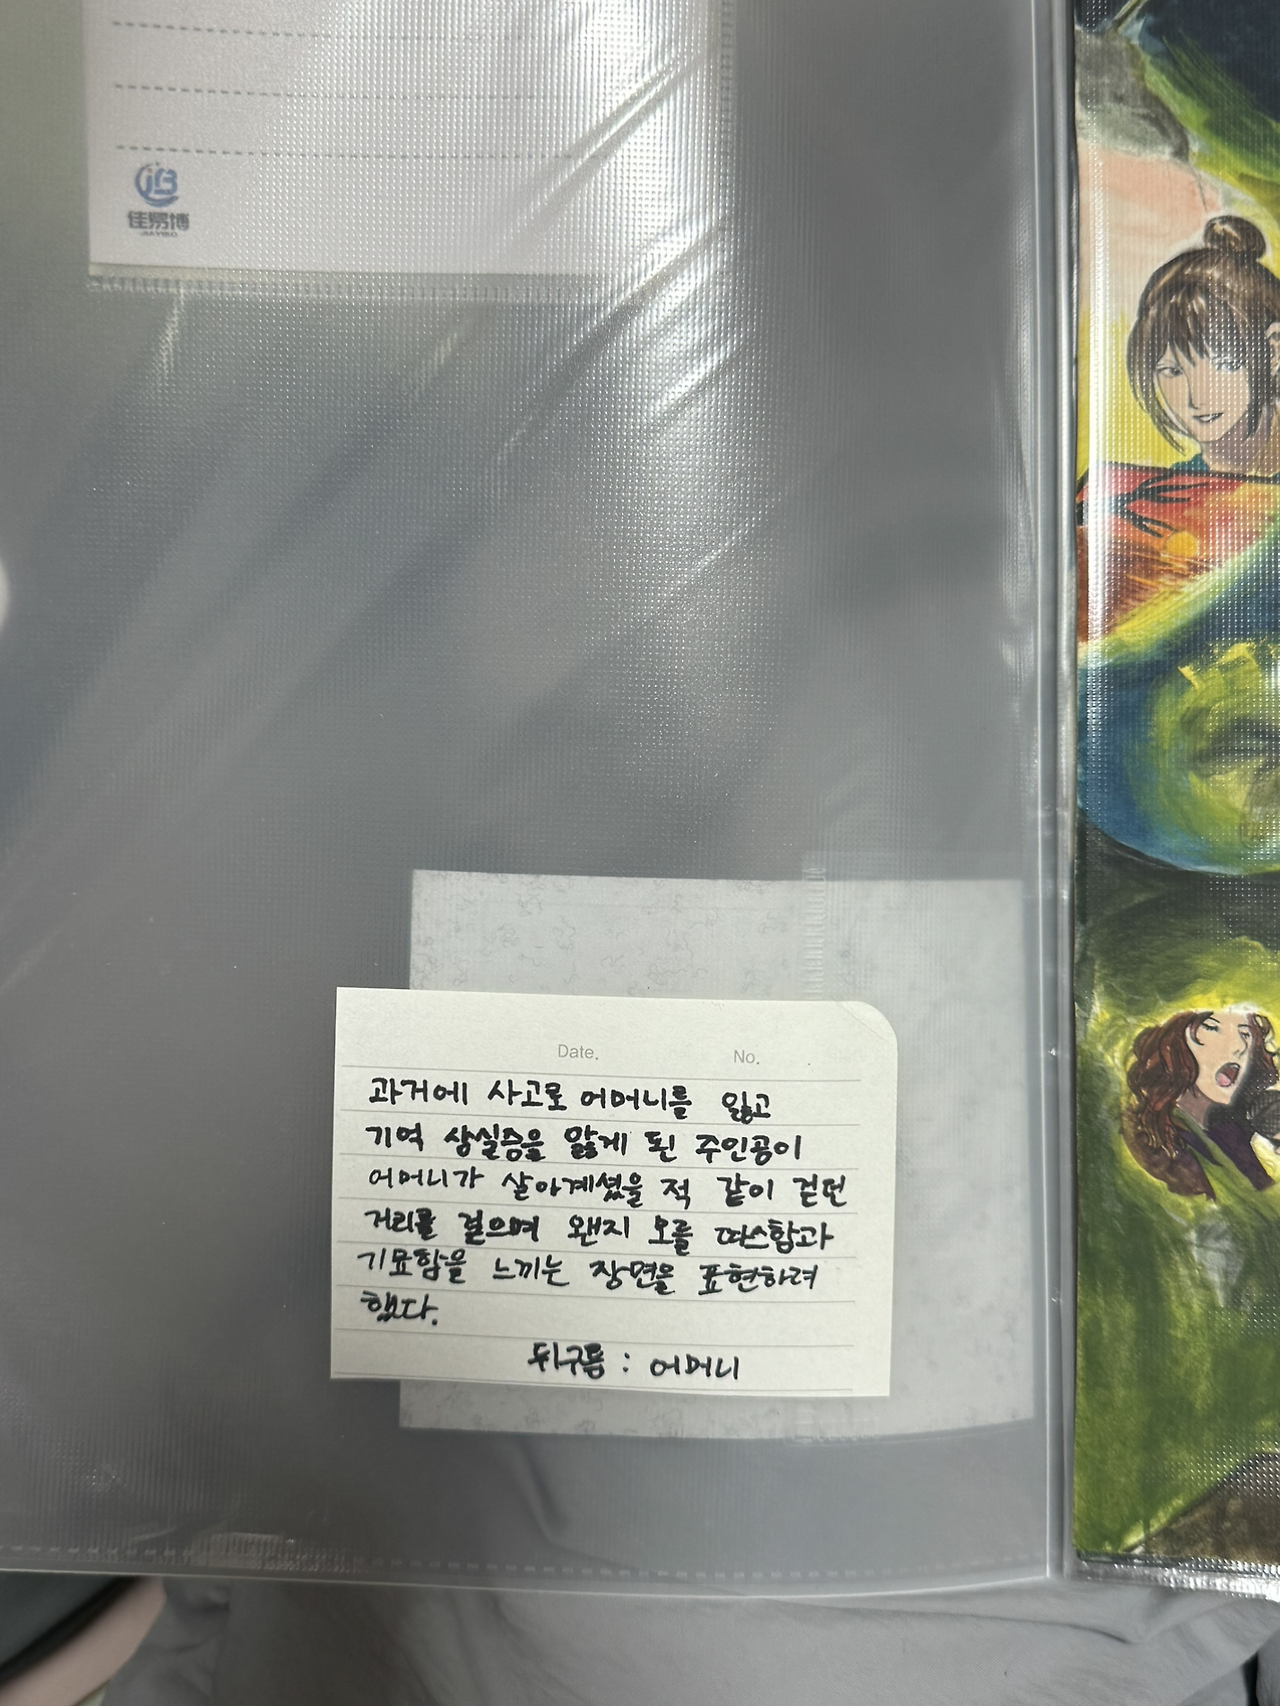 佳易博
JIAYIBO
Date.
No.
과거에 사고로 어머니를 잃고
기억 상실증을 앓게 된 주인공이
어머니가 살아계셨을 적 같이 걷던
거리를 걸으며 왠지 모를 따스함과
기묘함을 느끼는 장면을 표현하려
했다.
뒤구름 : 어머니